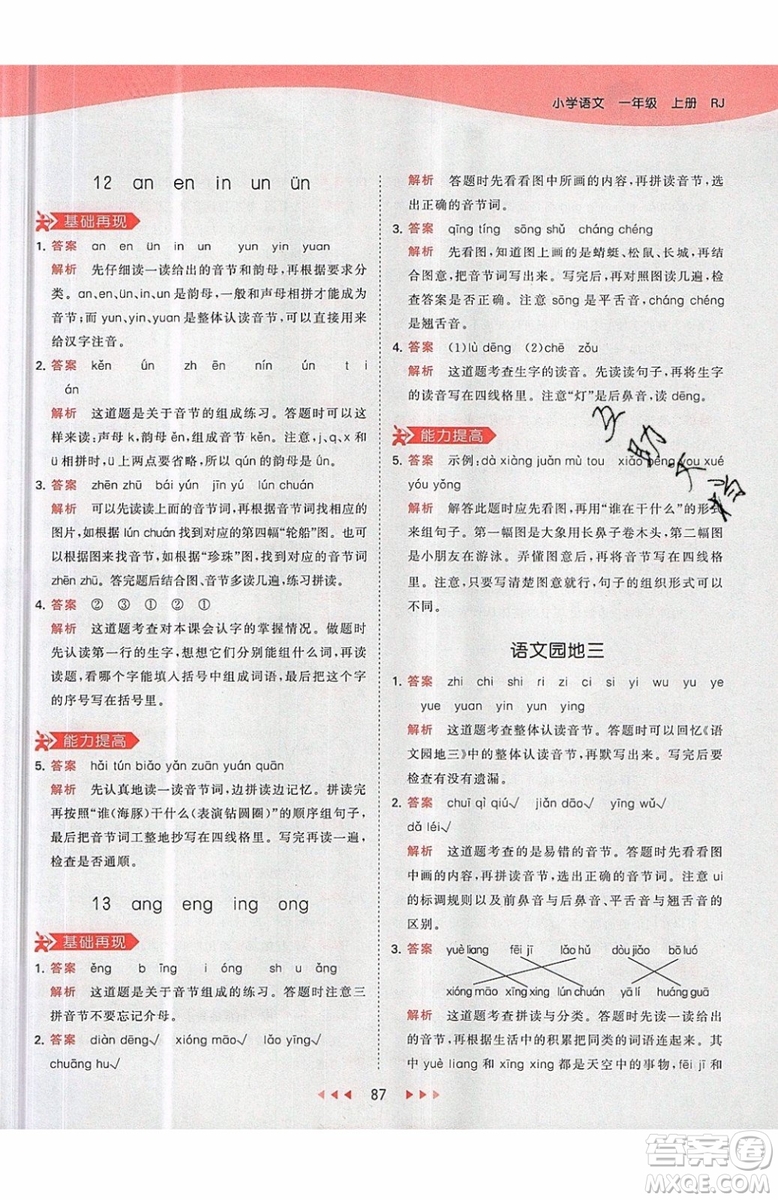 小学语文 一年级 上册 RJ
12 an en in un ün
基础再现
1. 答案 an en ün in un yun yin yuan
解析 先仔细读一读给出的音节和韵母，再按要求分
类。an、en、ün、in、un 是韵母，一般和声母相拼组成
音节；而 yun、yin、yuan 是整体认读音节，可以直接
给汉字注音。
2. 答案 kěn ún zh ín ún t i
án
解析 这道题是关于音节的组成练习。答题时可以先拼
读一下。声母 k，韵母 ěn，组成音节 kěn。注意，j、q、x
和 ü 相拼，ü 上两点要省略，所以空格里应填 ún。
3. 答案 zhēn zhū bái yún jīn yú lún chuán
解析 这道题考查音节词的拼读，再根据音节词找相应的
图片，如根据 lún chuán 找到对应的第四幅“轮船”图；
或者根据图画，如根据“珍珠”图找到对应的音节词
zhēn zhū。答完题后结合图、音节多读几遍，练习拼读。
4. 答案 ② ③ ① ② ①
解析 这道题考查对本课会认字的掌握情况。答题时可
先认读第一行的生字，想想它们分别能组什么词，再读
题目，看哪个字能填入括号中组成词语，就把这个字
的序号写在括号里。
能力提高
5. 答案 hǎi tún biǎo yǎn zuān yuán quān
解析 先认真地读一读音节词，边读边记忆。拼读完
再按照“谁（海豚）干什么（表演钻圆圈）”的顺序组句子，
最后把音节词工整地抄写在四线格里。写完再读一遍，
检查是否通顺。
13 ang eng ing ong
基础再现
1. 答案 ěng b īng i óng sh u ǎng
解析 这道题是关于音节组成的练习。答题时注意三
拼音节不要忘记介母。
2. 答案 diàn dēng√ xióng māo√ hóng qí√
chuāng hu√
解析 答题时先看看图中所画的内容，再拼读音节，选
出正确的音节词。
3. 答案 qīng tíng sōng shǔ cháng chéng
解析 先看图，知道图上画的是蜻蜓、松鼠、长城，再结
合图意，把音节写完整。写完后，结合图再读几遍，检
查答案是否正确。注意 sōng 是平舌音，cháng chéng
是翘舌音。
4. 答案 (1)lù dēng (2)chē zǒu
解析 这道题考查生字的读音。先读读句子，再把生字
的读音写在四线格里。注意“灯”是后鼻音，读 dēng。
能力提高
5. 答案 示例：dà xiàng juǎn mù tou xiǎo péng you xué
yóu yǒng
解析 解答此题时应先看图，再用“谁在干什么”的形式
来组句子。第一幅图是大象用长鼻子卷木头，第二幅图
是小朋友在游泳。弄懂图意后，再将音节写在四线格
里。注意，只要写清楚图意就可以，句子的组织形式可以
不同。
语文园地三
1. 答案 zhi chi shi ri zi ci si yi wu yu ye
yue yuan yin yun ying
解析 这道题考查整体认读音节。答题时可以回忆《语
文园地三》中的整体认读音节，再填写。填写完后要
检查有没有遗漏。
2. 答案 chuī qì qiú√ jiǎn dāo√ yīng wǔ√
dǎ léi√
解析 这道题考查的是易错的音节。答题时先看图，知
道图上画的是什么，再拼读音节，选出答案。注意 ui
的标调规则以及前鼻音与后鼻音、平舌音与翘舌音的
区别。
3. 答案 yuè liang fēi jī lǎo hǔ dòu jiǎo bō luó
xióng māo xīng xing lún chuán yā lí huáng guā
解析 这道题考查音节词的拼读。先读读每个音节词，
再根据生活中的积累把同类的词语连起来。其
中 yuè liang 和 xīng xing 都是天空中的事物，fēi jī 和
87
互助文档
答案圈
MXQE.COM